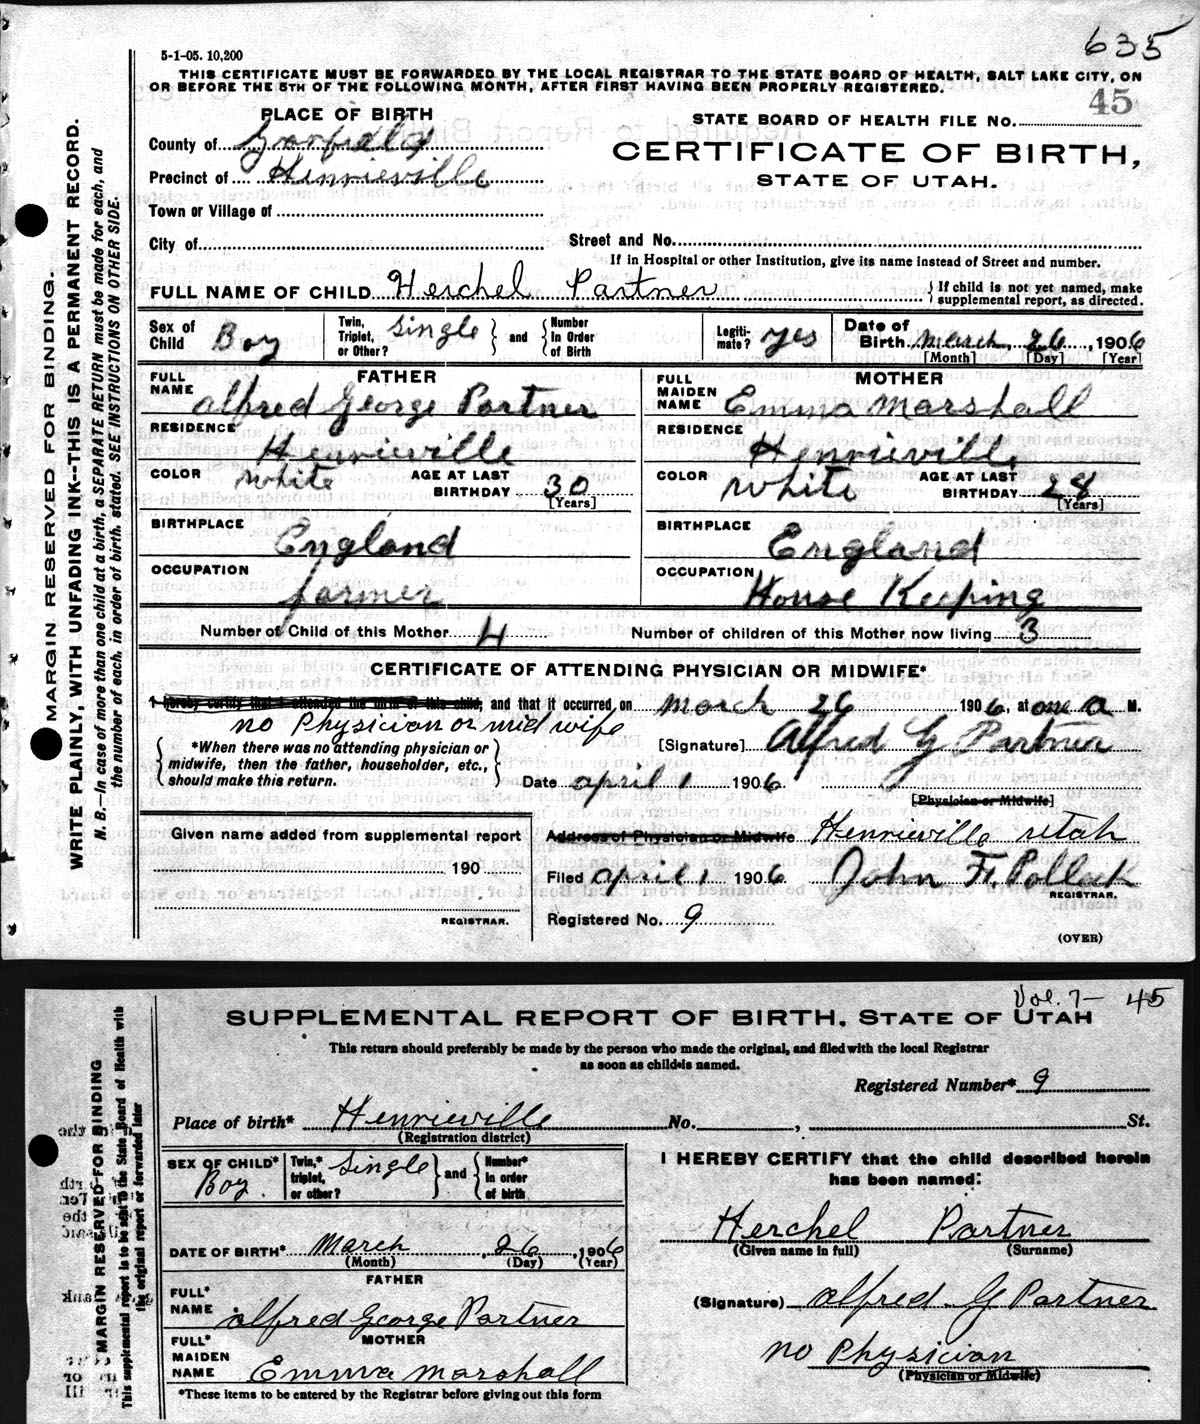 635
5-1-05. 10,200
THIS CERTIFICATE MUST BE FORWARDED BY THE LOCAL REGISTRAR TO THE STATE BOARD OF HEALTH, SALT LAKE CITY, ON
OR BEFORE THE 5TH OF THE FOLLOWING MONTH, AFTER FIRST HAVING BEEN PROPERLY REGISTERED.
45
PLACE OF BIRTH
STATE BOARD OF HEALTH FILE NO.
County of Garfield
CERTIFICATE OF BIRTH,
Precinct of Henrieville
STATE OF UTAH.
Town or Village of
City of
Street and No.
If in Hospital or other Institution, give its name instead of Street and number.
FULL NAME OF CHILD Herchel Partner
If child is not yet named, make
supplemental report, as directed.
Sex of Child Boy
Twin, Triplet, or Other? Single and Number In Order of Birth
Legiti-mate? yes
Date of Birth March 26, 1906
[Month] [Day] [Year]
FATHER
FULL NAME alfred George Partner
RESIDENCE Henrieville
COLOR White AGE AT LAST BIRTHDAY 30 [Years]
BIRTHPLACE England
OCCUPATION farmer
MOTHER
FULL MAIDEN NAME Emma Marshall
RESIDENCE Henrieville
COLOR White AGE AT LAST BIRTHDAY 28 [Years]
BIRTHPLACE England
OCCUPATION House Keeping
Number of Child of this Mother 4
Number of children of this Mother now living 3
CERTIFICATE OF ATTENDING PHYSICIAN OR MIDWIFE*
I hereby certify that I attended the birth of this child; and that it occurred on March 26 1906, at one a M.
no Physician or mid wife
*When there was no attending physician or
midwife, then the father, householder, etc.,
should make this return.
[Signature] Alfred G Partner
Date april 1 1906
[Physician or Midwife]
Given name added from supplemental report
190
REGISTRAR.
Address of Physician or Midwife Henrieville utah
Filed april 1 1906 John F. Pollock
REGISTRAR.
Registered No. 9
(OVER)
MARGIN RESERVED FOR BINDING.
WRITE PLAINLY, WITH UNFADING INK--THIS IS A PERMANENT RECORD.
N. B.—In case of more than one child at a birth, a SEPARATE RETURN must be made for each, and
the number of each, in order of birth, stated. SEE INSTRUCTIONS ON OTHER SIDE.
Vol. 7- 45
SUPPLEMENTAL REPORT OF BIRTH, STATE OF UTAH
This return should preferably be made by the person who made the original, and filed with the local Registrar
as soon as child is named.
Registered Number* 9
Place of birth* Henrieville No. , St.
(Registration district)
SEX OF CHILD* Boy
Twin,* triplet, or other? Single and Number* in order of birth
DATE OF BIRTH* March, 26, 1906
(Month) (Day) (Year)
FATHER
FULL* NAME alfred George Partner
MOTHER
FULL* MAIDEN NAME Emma Marshall
*These items to be entered by the Registrar before giving out this form
I HEREBY CERTIFY that the child described herein
has been named:
Herchel Partner
(Given name in full) (Surname)
(Signature) alfred G Partner
no Physician
(Physician or Midwife)
MARGIN RESERVED FOR BINDING
This supplemental report is to be sent to the State Board of Health with
the original report or forwarded later